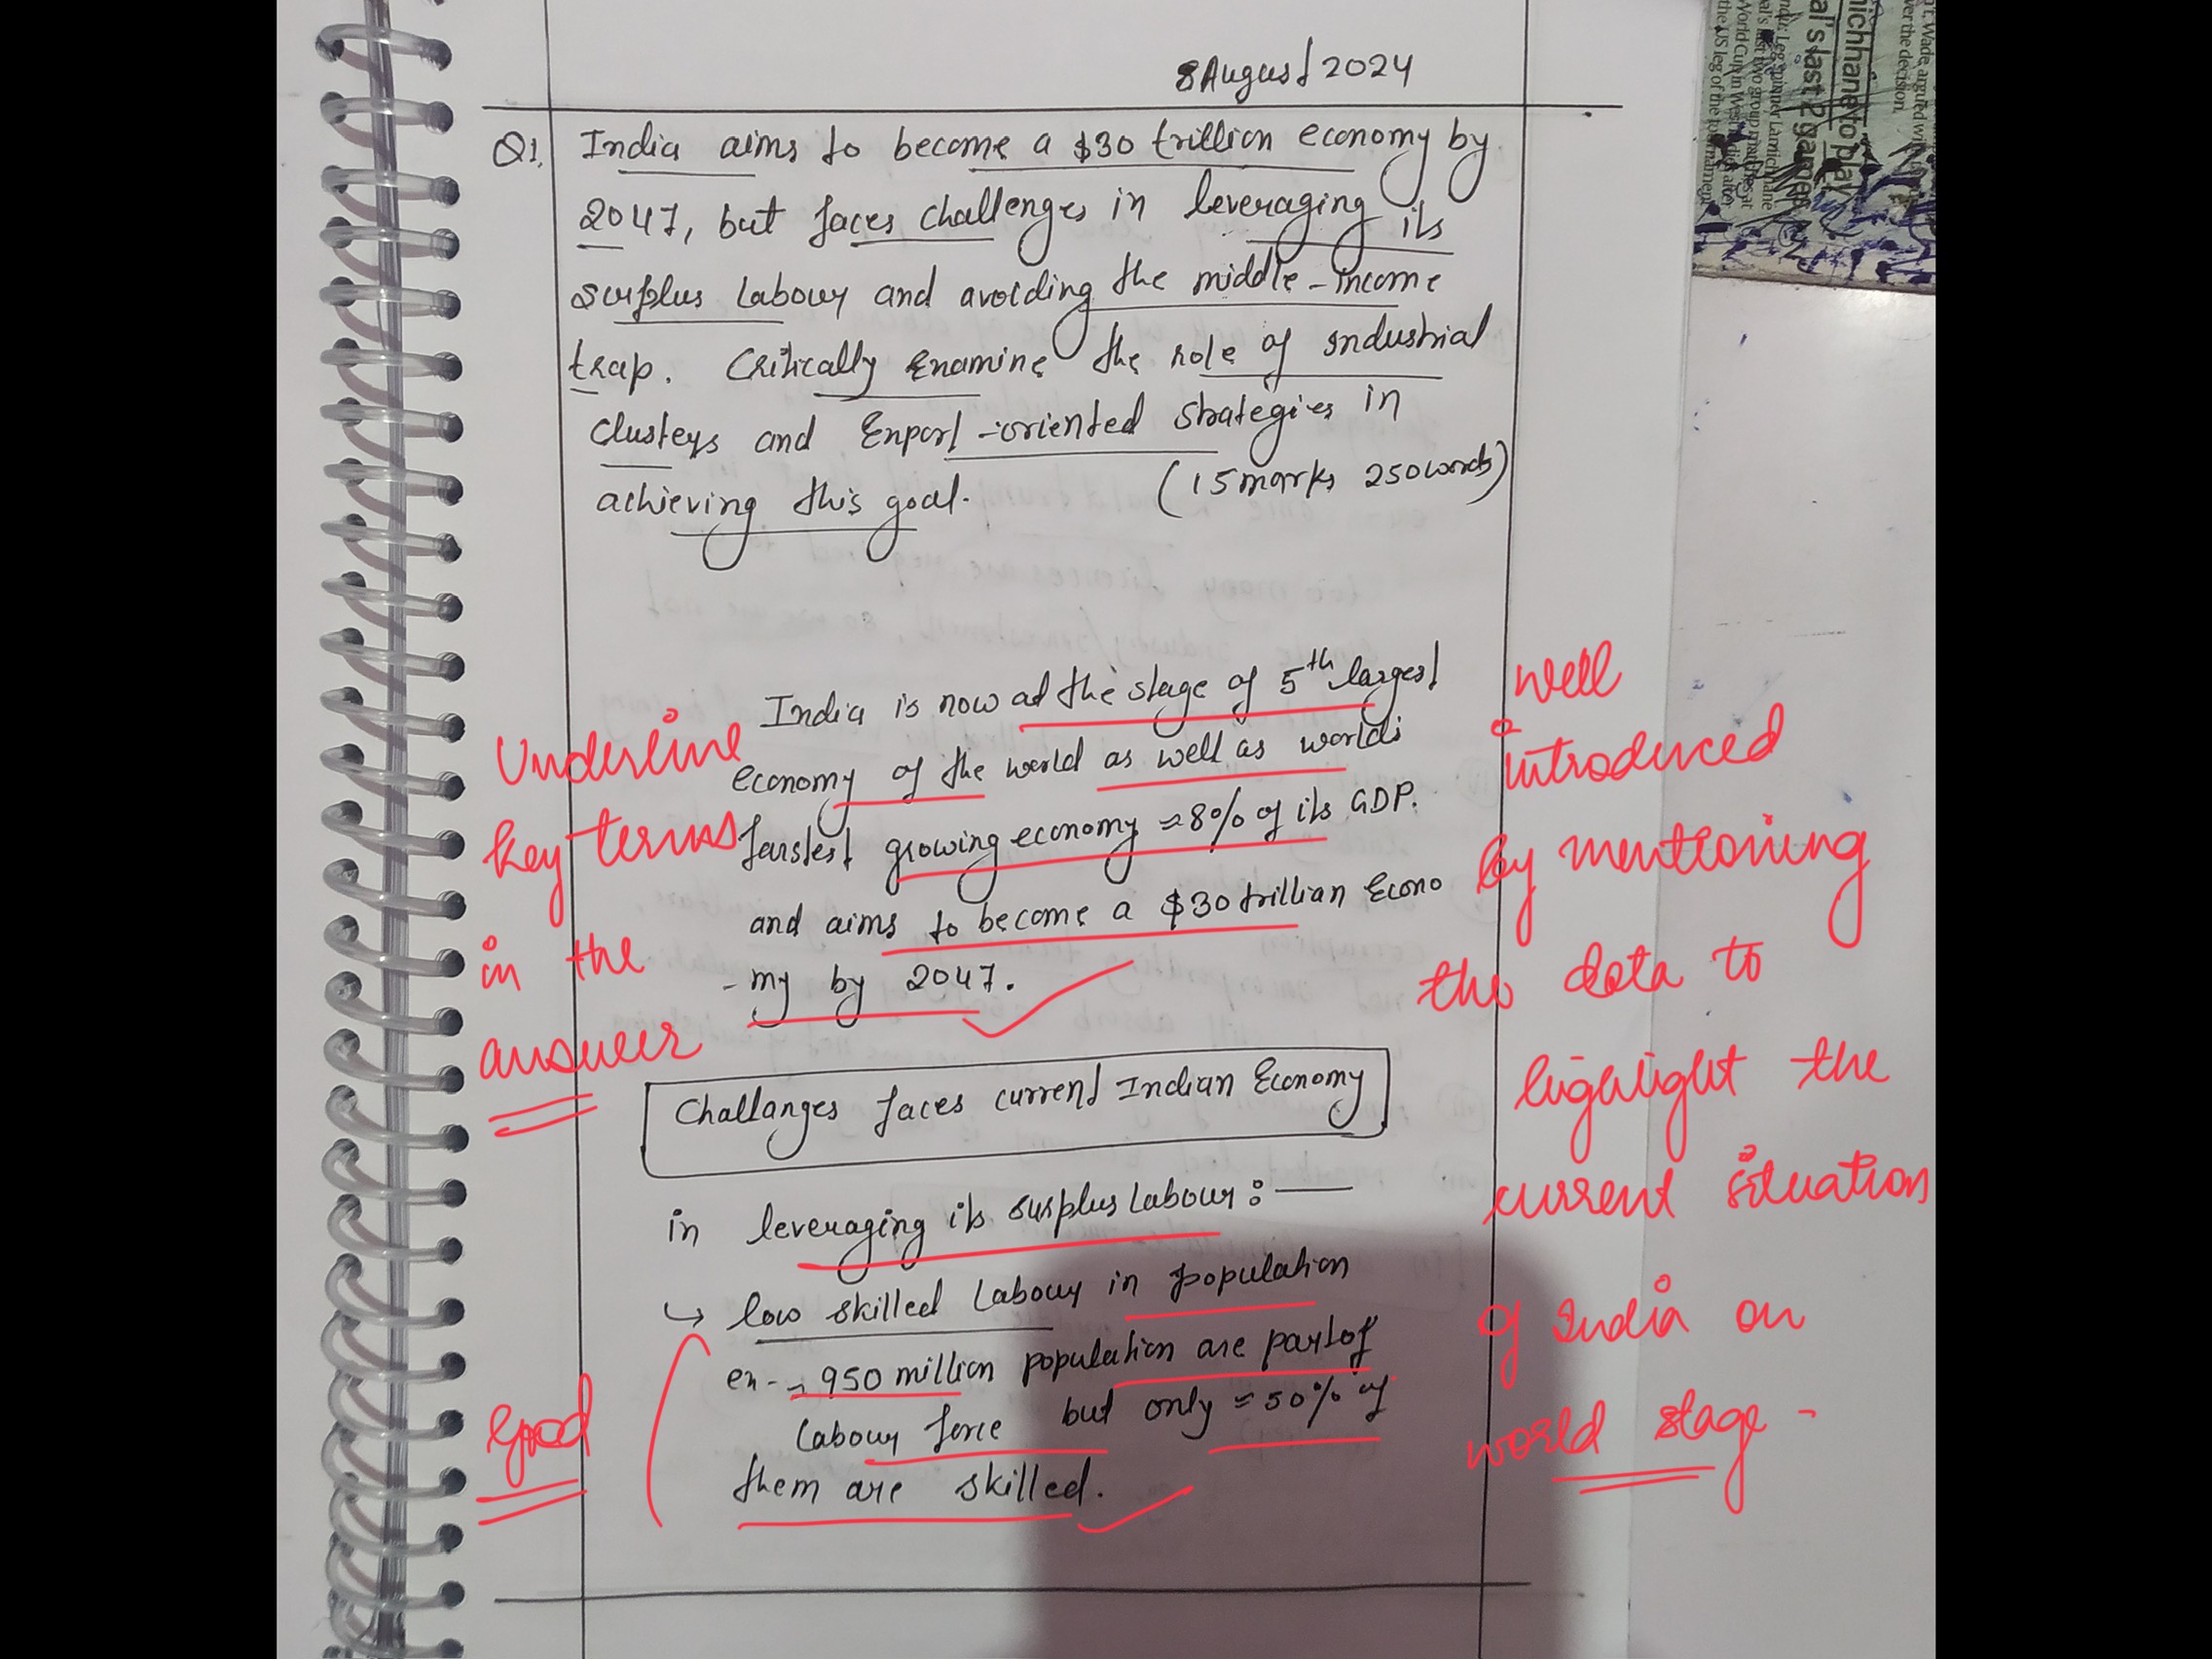 8 August 2024
Q1. India aims to become a $30 trillion economy by
2047, but faces challenges in leveraging its
surplus Labour and avoiding the middle-income
trap. Critically Examine the role of industrial
clusters and Export-oriented strategies in
achieving this goal. (15 marks 250 words)
India is now at the stage of 5th largest
economy of the world as well as worlds
fastest growing economy ≈8% of its GDP.
and aims to become a $30 trillian Econo
-my by 2047.
Underline
key terms
in the
answer
well
introduced
by mentioning
the data to
highlight the
current situation
of India on
world stage -
Challanges faces current Indian Economy
in leveraging its surplus Labour :—
↳ low skilled Labour in population
ex- ~950 million population are part of
Labour force but only ≈50% of
them are skilled.
Good
nichhane to play
al's last 2 games
n't. Wade argued with
ver the decision.
Leg-spinner Lamichhane
al's last two group matches at
World Cup in West Indies after
the US leg of the tournament